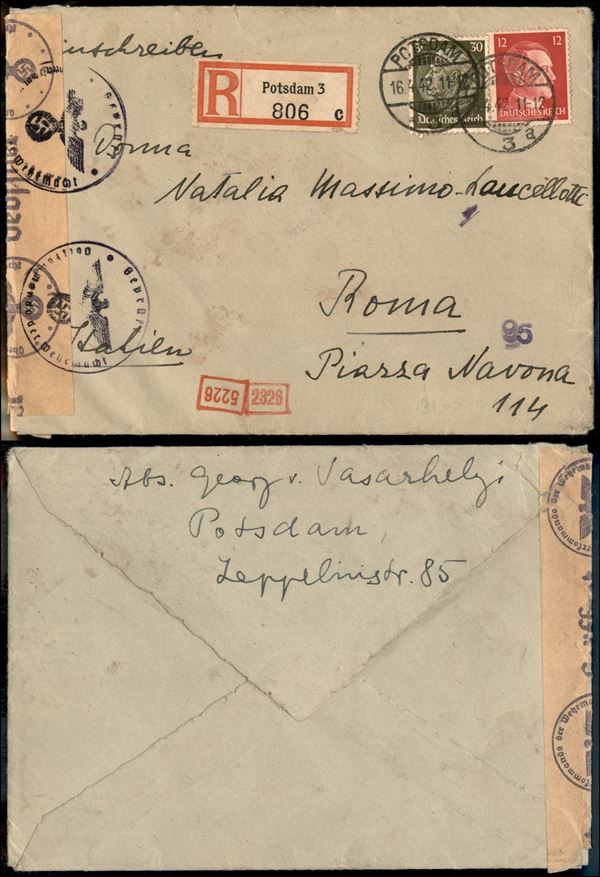 Einschreiben
R
Potsdam 3
806 c
POTSDAM
16.4.42.11-12
30
Deutsches Reich
12 12
DEUTSCHES REICH
3 a
Donna
Natalia Massimo-Lancellotti
Roma
95
Italien
Piazza Navona
114
5226
2326
Geprüft
Oberkommando der Wehrmacht
Abs. Georg v. Vasarhelyi
Potsdam,
Zeppelinstr. 85
kommando der Wehrma
mmando der Wehrma